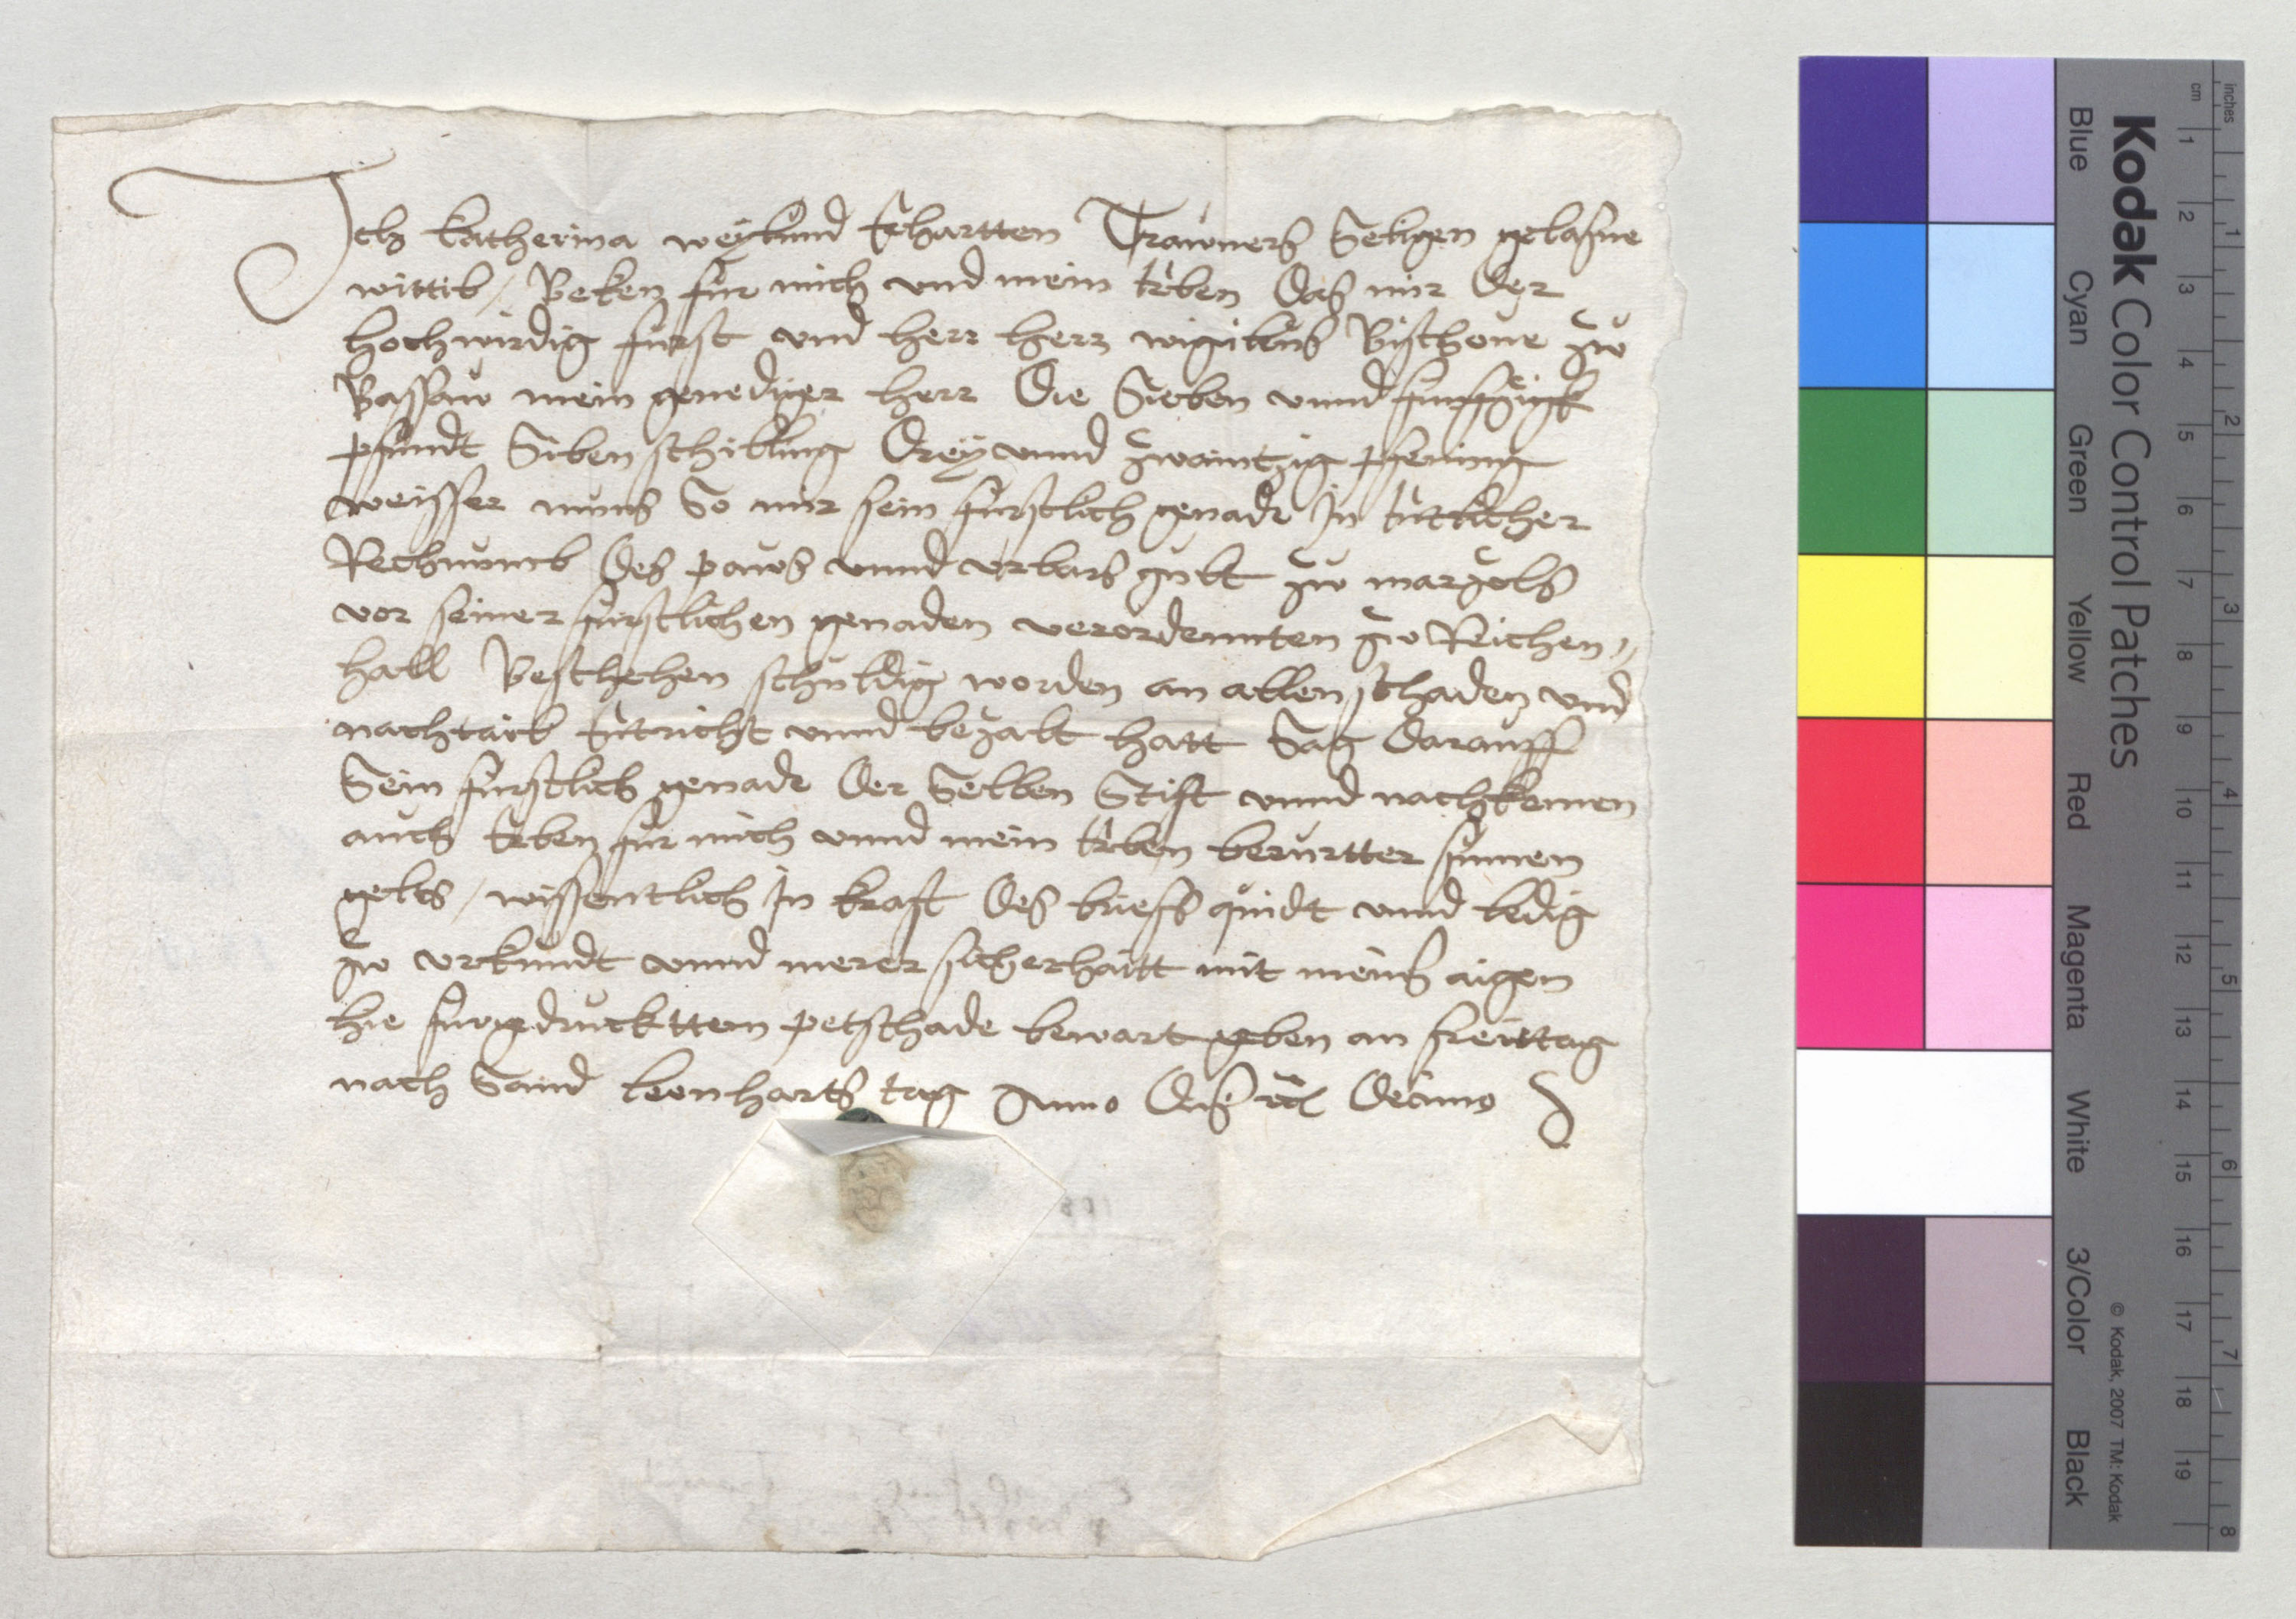 Ich katherina weylund Erhartten Trawners Seligen gelasne
wittib / Beken fur mich vnd mein Erben Das mir Der
hochwirdig furst vnd herr herr wigileus Bischoue zw
Bassaw mein genediger herr Die Siben vnnd funfzigk
pfundt Siben schilling Drey vnnd zwaintzig pfening
weisser muns So mir sein furstlich genade In Entlicher
Rechnunck Des paws vnnd vrbars gult zw marzols
vor seiner furstlichen genaden verordennten zw Reichen//
hall Beschehen schuldig worden an allen schaden vnd
nachtaill Entricht vnnd bezalt hatt Sag Darauff
Sein furstlich genade Der Selben Stift vnnd nachkomen
auch Erben fur mich vnnd mein Erben berurtter sumen
gelts / wissentlich In kraft Des brieffs quidt vnnd ledig
zw vrkundt vnnd merer sicherhaitt mit meins aigen
hie furgedruckttem petschade bewart geben an freittag
nach Sand leonharts tag Anno Decimo
Kodak Color Control Patches
Blue Cyan Green Yellow Red Magenta White 3/Color Black
© Kodak, 2007 TM: Kodak
cm 1 2 3 4 5 6 7 8 9 10 11 12 13 14 15 16 17 18 19
inches 1 2 3 4 5 6 7 8